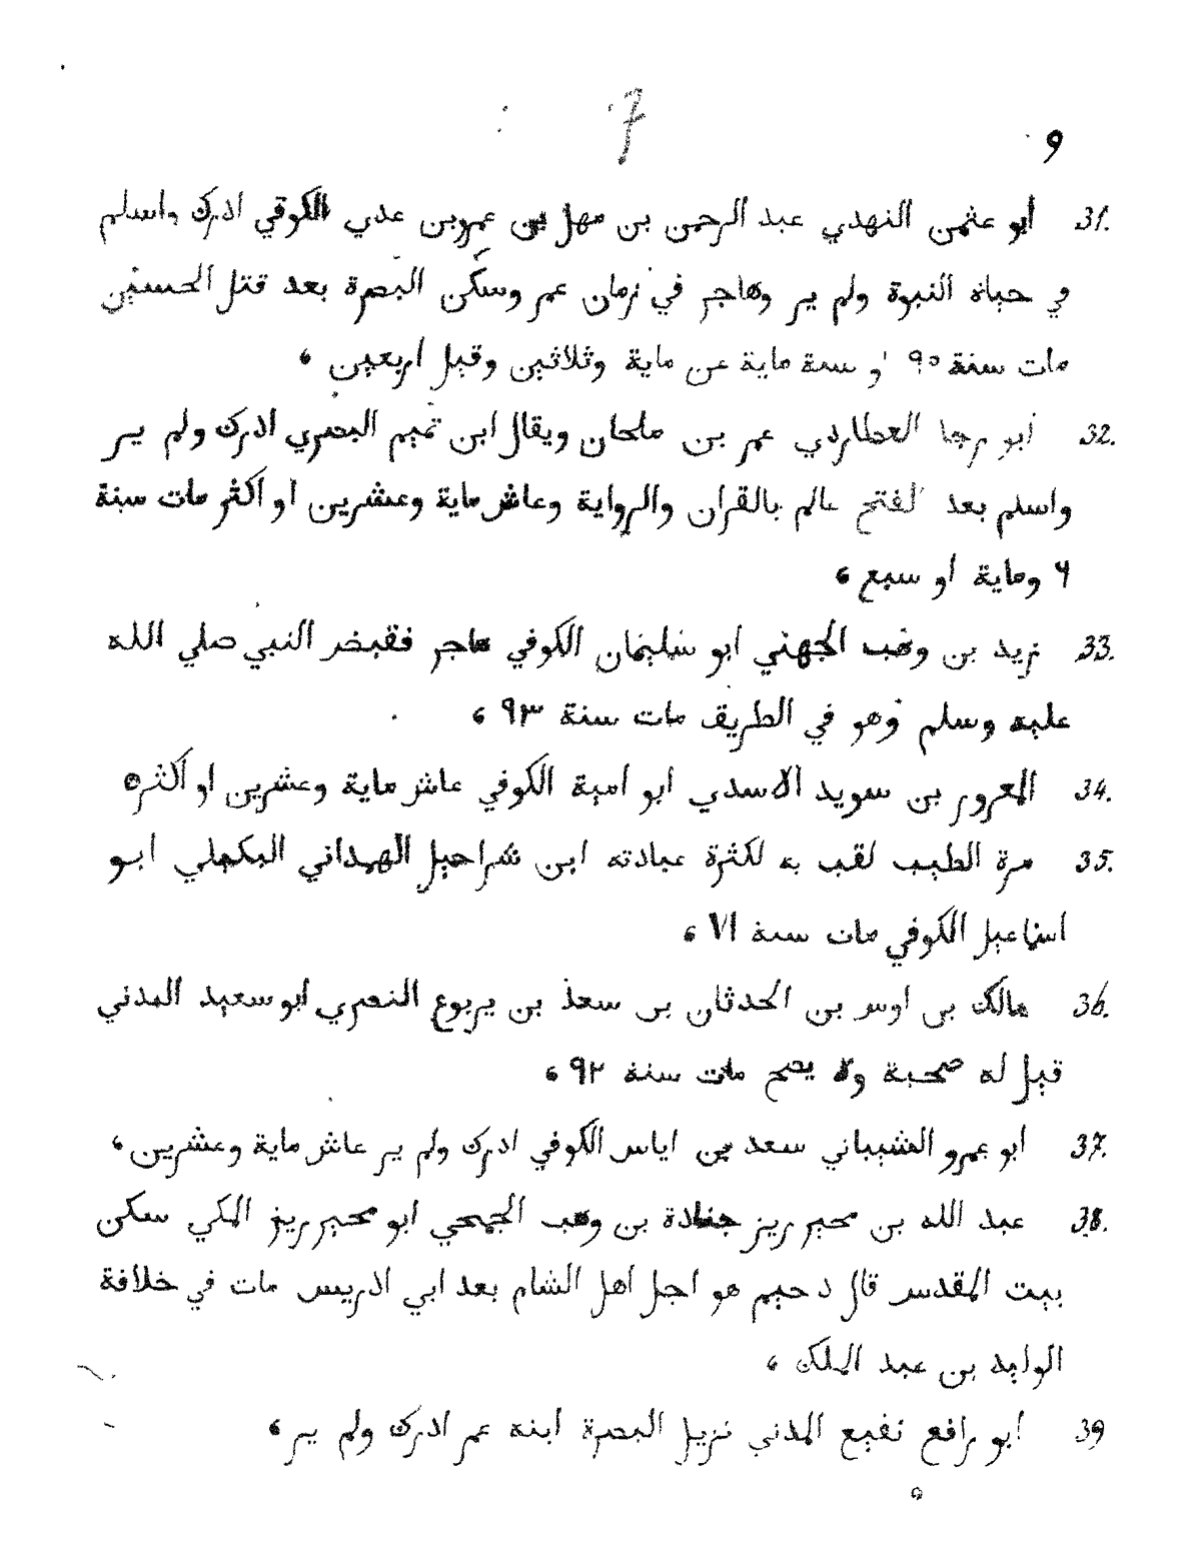 7
9
31. أبو عثمن النهدي عبد الرحمن بن مهل بن عمرو بن عدي الكوفي ادرك واسلم
في حياة النبوة ولم ير وهاجر في زمان عمر وسكن البصرة بعد قتل الحسين
مات سنة ٩٥ او سنة ماية عن ماية وثلاثين وقيل اربعين ،
32. ابو رجا العطاردي عمر بن ملحان ويقال ابن تميم البصري ادرك ولم ير
واسلم بعد الفتح عالم بالقران والرواية وعاش ماية وعشرين او اكثر مات سنة
٩ وماية او سبع ،
33. زيد بن وهب الجهني ابو سليمان الكوفي هاجر فقبض النبي صلي الله
عليه وسلم وهو في الطريق مات سنة ٩٣ ،
34. المعرور بن سويد الاسدي ابو امية الكوفي عاش ماية وعشرين او اكثره
35. مرة الطيب لقب به لكثرة عبادته ابن شراحيل الهمداني البكيلي ابو
اسماعيل الكوفي مات سنة ٧١ ،
36. مالك بن اوس بن الحدثان بن سعد بن يربوع النصري ابو سعيد المدني
قيل له صحبة ولا يصح مات سنة ٩٢ ،
37. ابو عمرو الشيباني سعد بن اياس الكوفي ادرك ولم ير عاش ماية وعشرين ،
38. عبد الله بن محيريز جنادة بن وهب الجمحي ابو محيريز المكي سكن
بيت المقدس قال دحيم هو اجل اهل الشام بعد ابي ادريس مات في خلافة
الوليد بن عبد الملك ،
39 ابو رافع نفيع المدني نزيل البصرة ابنه عمر ادرك ولم ير ،